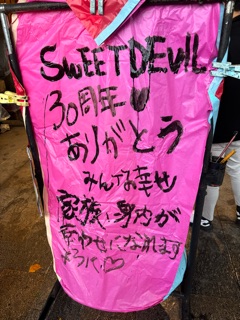 SWEETDEVIL
30周年♥
ありがとう
みんな幸せ
家族、身内が
幸わせになれます
ように♡